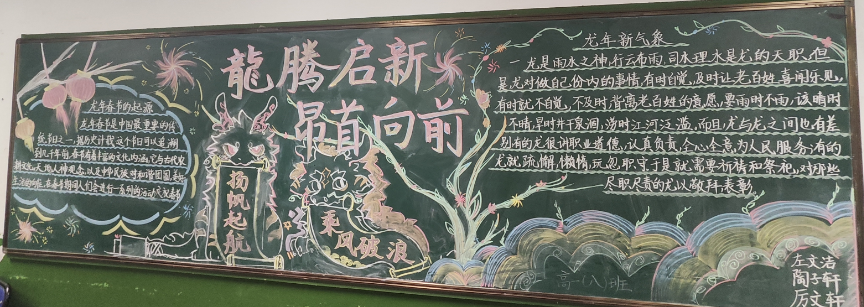 龍腾启新
昂首向前
龙年春节的起源
龙年春节是中国最重要的传
统节日之一
扬帆起航
乘风破浪
龙年新气象
龙是雨水之神,行云布雨,司水理水是龙的天职,但
是龙对做自己份内的事情,有时自觉,及时让老百姓喜闻乐见,
有时就不自觉,不及时,背离老百姓的意愿,要雨时不雨,该晴时
不晴,旱时井干泉涸,涝时江河泛滥,而且,龙与龙之间也有差
别有的龙很讲职业道德,认真负责,全心全意为人民服务;有的
龙就疏懒,懒惰,玩忽职守于是就需要祈祷和祭祀,对那些
尽职尽责的龙以敬拜表彰
高一(八)班
左文洁
陶子轩
厉文轩